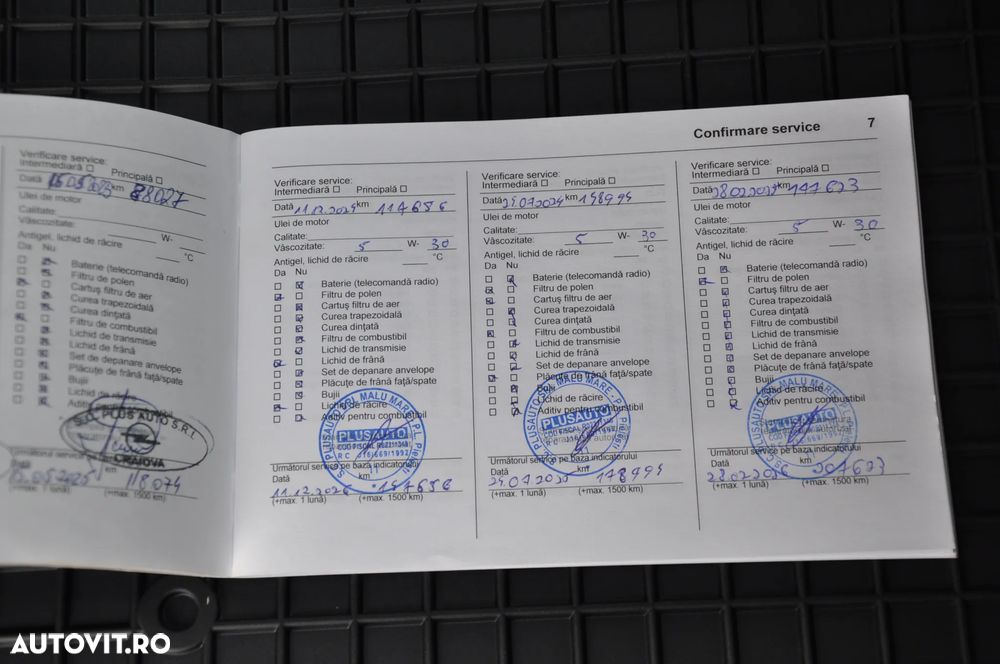 Confirmare service 7
Verificare service:
Intermediară Principală
Dată km 88027
Ulei de motor
Calitate:
Vâscozitate: W-
Antigel, lichid de răcire °C
Da Nu
Baterie (telecomandă radio)
Filtru de polen
Cartuş filtru de aer
Curea trapezoidală
Curea dinţată
Filtru de combustibil
Lichid de transmisie
Lichid de frână
Set de depanare anvelope
Plăcuţe de frână faţă/spate
Bujii
Lichid de răcire
Aditiv
PLUS AUTO S.R.L.
CRAIOVA
km
118074
(+max. 1 lună) (+max. 1500 km)
Verificare service:
Intermediară Principală
Dată 11.12.2024 km 117656
Ulei de motor
Calitate:
Vâscozitate: 5 W- 30
Antigel, lichid de răcire °C
Da Nu
Baterie (telecomandă radio)
Filtru de polen
Cartuş filtru de aer
Curea trapezoidală
Curea dinţată
Filtru de combustibil
Lichid de transmisie
Lichid de frână
Set de depanare anvelope
Plăcuţe de frână faţă/spate
Bujii
Lichid de răcire
Aditiv pentru combustibil
PLUSAUTO
COD FISCAL
Următorul service pe baza indicatorului
Dată km
11.12.2026
(+max. 1 lună) (+max. 1500 km)
Verificare service:
Intermediară Principală
Dată km
Ulei de motor
Calitate:
Vâscozitate: 5 W- 30
Antigel, lichid de răcire °C
Da Nu
Baterie (telecomandă radio)
Filtru de polen
Cartuş filtru de aer
Curea trapezoidală
Curea dinţată
Filtru de combustibil
Lichid de transmisie
Lichid de frână
Set de depanare anvelope
Plăcuţe de frână faţă/spate
Bujii
Lichid de răcire
Aditiv pentru combustibil
PLUSAUTO
Următorul service pe baza indicatorului
Dată km
(+max. 1 lună) (+max. 1500 km)
Verificare service:
Intermediară Principală
Dată km
Ulei de motor
Calitate:
Vâscozitate: 5 W- 30
Antigel, lichid de răcire °C
Da Nu
Baterie (telecomandă radio)
Filtru de polen
Cartuş filtru de aer
Curea trapezoidală
Curea dinţată
Filtru de combustibil
Lichid de transmisie
Lichid de frână
Set de depanare anvelope
Plăcuţe de frână faţă/spate
Bujii
Lichid de răcire
Aditiv pentru combustibil
PLUSAUTO
Următorul service pe baza indicatorului
Dată km
(+max. 1 lună) (+max. 1500 km)
AUTOVIT.RO